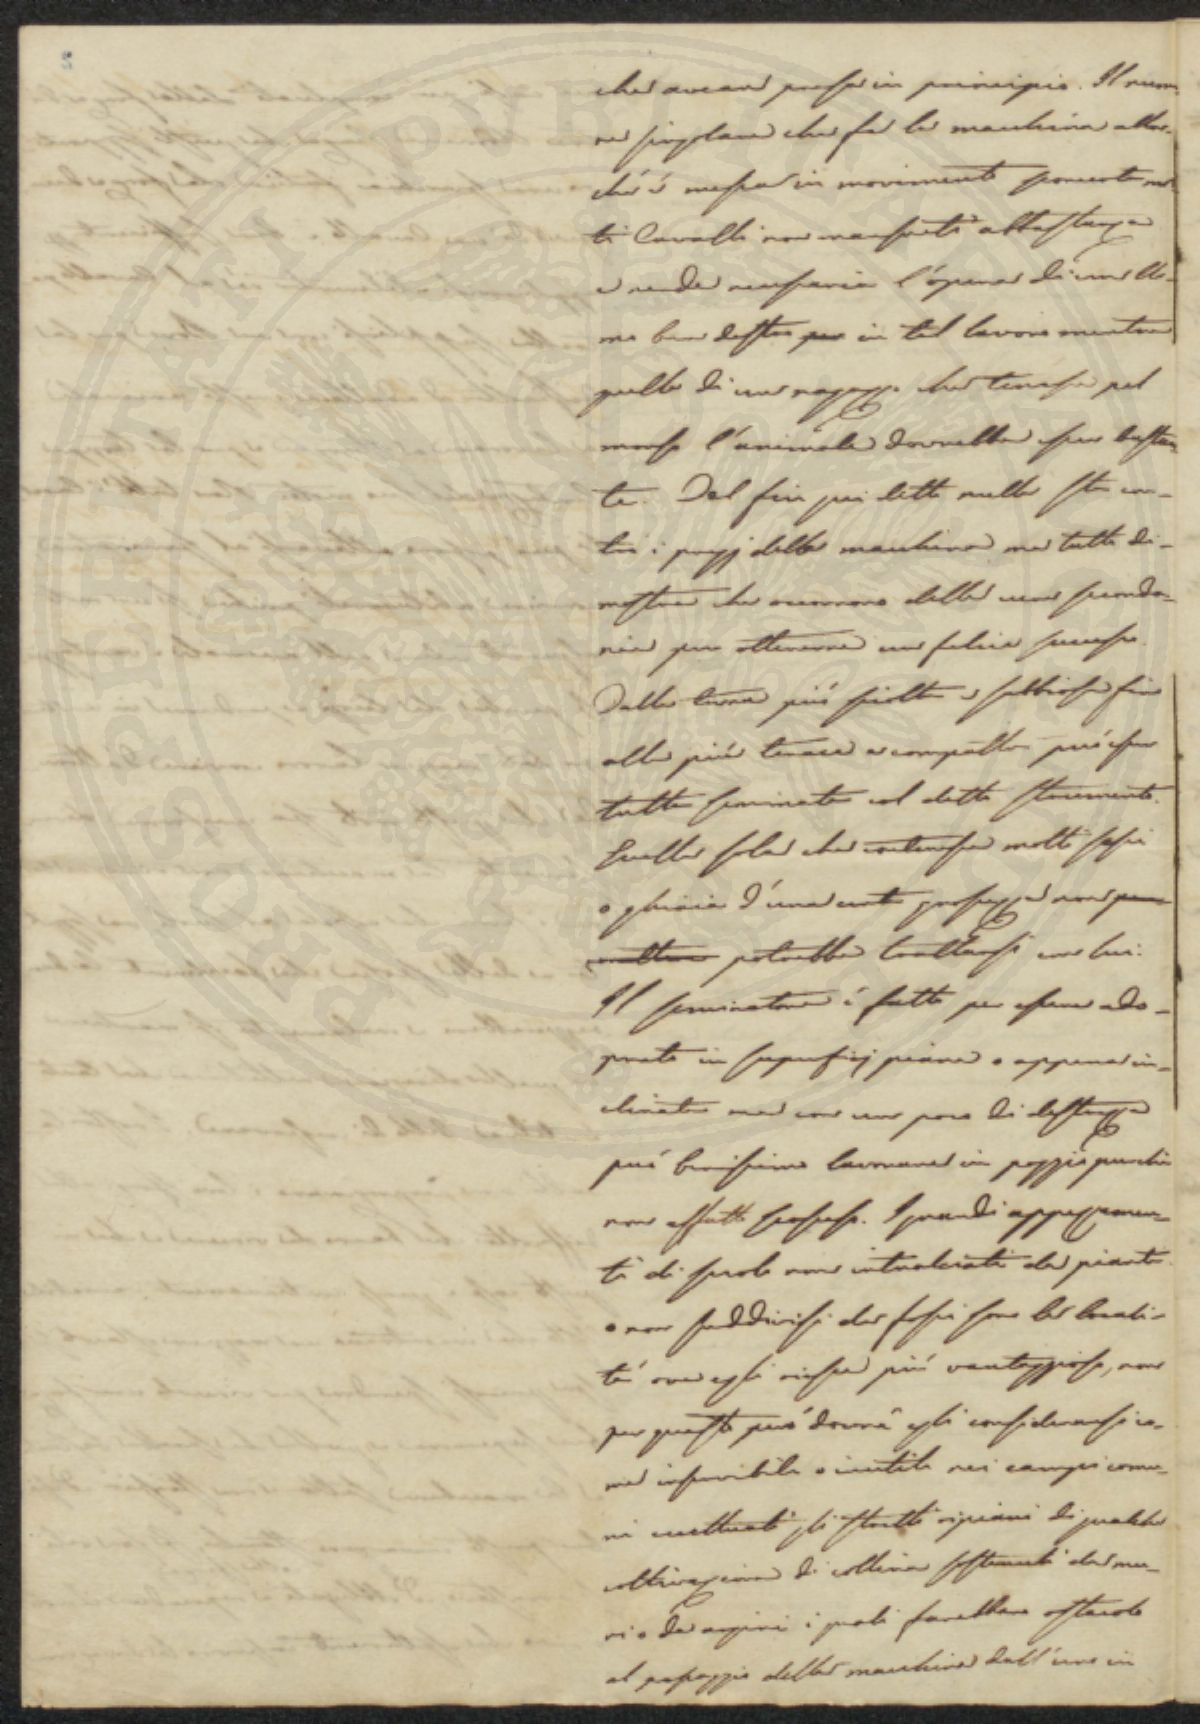 che aveano preso in principio. Il rumo-
re singolare che fa la macchina allor-
chè è messa in movimento
ti Cavalli non mansueti abbastanza
e rende necessaria l'opera di un Uo-
mo ben destro per in tal lavoro mentre
quella di un ragazzo che tenesse pel
morso l'animale dovrebbe esser bastan
te. Dal fin quì detto nulla sta con-
tro i pregj della macchina ma tutto di-
mostra che occorrono delle cure seconda-
rie per ottenerne un felice successo.
Dalla terra più sciolta e sabbiosa fino
alla più tenace e compatta può esser
tutta seminata col detto strumento.
Quella sola che contenesse molti sassi
o ghiaia d'una certa grossezza non per-
mettere potrebbe trattarsi con lui.
Il seminatore è fatto per essere ado-
prato in superficj piane o appena in-
clinate ma con un poco di destrezza
può benissimo lavorare in poggio purchè
non affatto scosceso. I grandi appezzamen-
ti di suolo non intralciati da piante
o non suddivisi da fossi sono le locali-
tà ove egli riesce più vantaggioso, non
per questo però dovrà egli considerarsi co-
me inservibile o inutile nei campi comu-
ni eccettuati gli stretti ripiani di qualche
coltivazione di collina sostenuti da mu-
ri o da argini i quali farebbero ostacolo
al passaggio della macchina dall'uno in